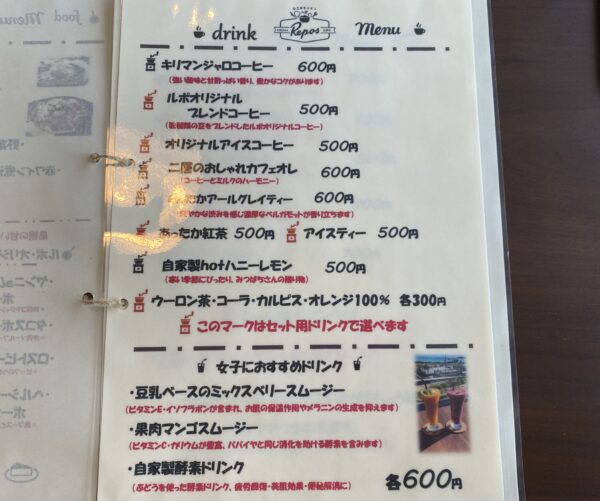 drink
Repos
Menu
キリマンジャロコーヒー 600円
(強い酸味と甘酸っぱい香り、豊かなコクがあります)
ルポオリジナル
ブレンドコーヒー 500円
(数種類の豆をブレンドしたルポオリジナルコーヒー)
オリジナルアイスコーヒー 500円
二層のおしゃれカフェオレ 600円
(コーヒーとミルクのハーモニー)
たかアールグレイティー 600円
やかな渋みを感じ濃厚なベルガモットが香り立ちます)
あったか紅茶 500円 アイスティー 500円
自家製hotハニーレモン 500円
(寒い季節にぴったり、みつばちさんの贈り物)
ウーロン茶・コーラ・カルピス・オレンジ100% 各300円
このマークはセット用ドリンクで選べます
女子におすすめドリンク
・豆乳ベースのミックスベリースムージー
(ビタミンE・イソフラボンが含まれ、お肌の保湿作用やメラニンの生成を抑えます)
・果肉マンゴスムージー
(ビタミンC・カリウムが豊富、パパイヤと同じ消化を助ける酵素を含みます)
・自家製酵素ドリンク 各600円
(ぶどうを使った酵素ドリンク、疲労回復・美肌効果・便秘解消に)